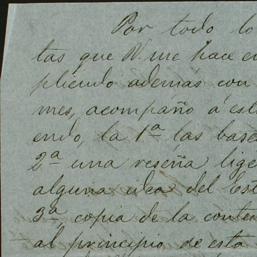 Por todo lo
tas que V. me hace en
pliendo además con
mes, acompaño a est
endo, la 1ª las base
2ª una reseña lige
alguna idea del Est
3ª copia de la conte
al principio de esta